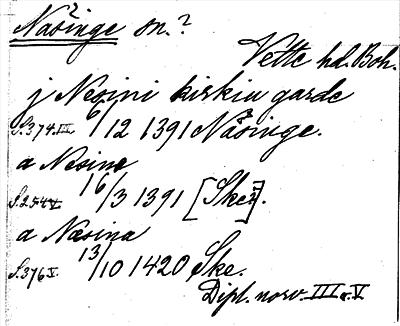 Näsinge sn.?
Vette hd. Boh.
j Nesini kirkiu garde
S. 374. III 6/12 1391 Nåsinge.
a Nesine
S. 254 V 16/3 1391 [Ske].
a Næsina
S. 376 V. 13/10 1420 Ske.
Dipl. norv. III o. V